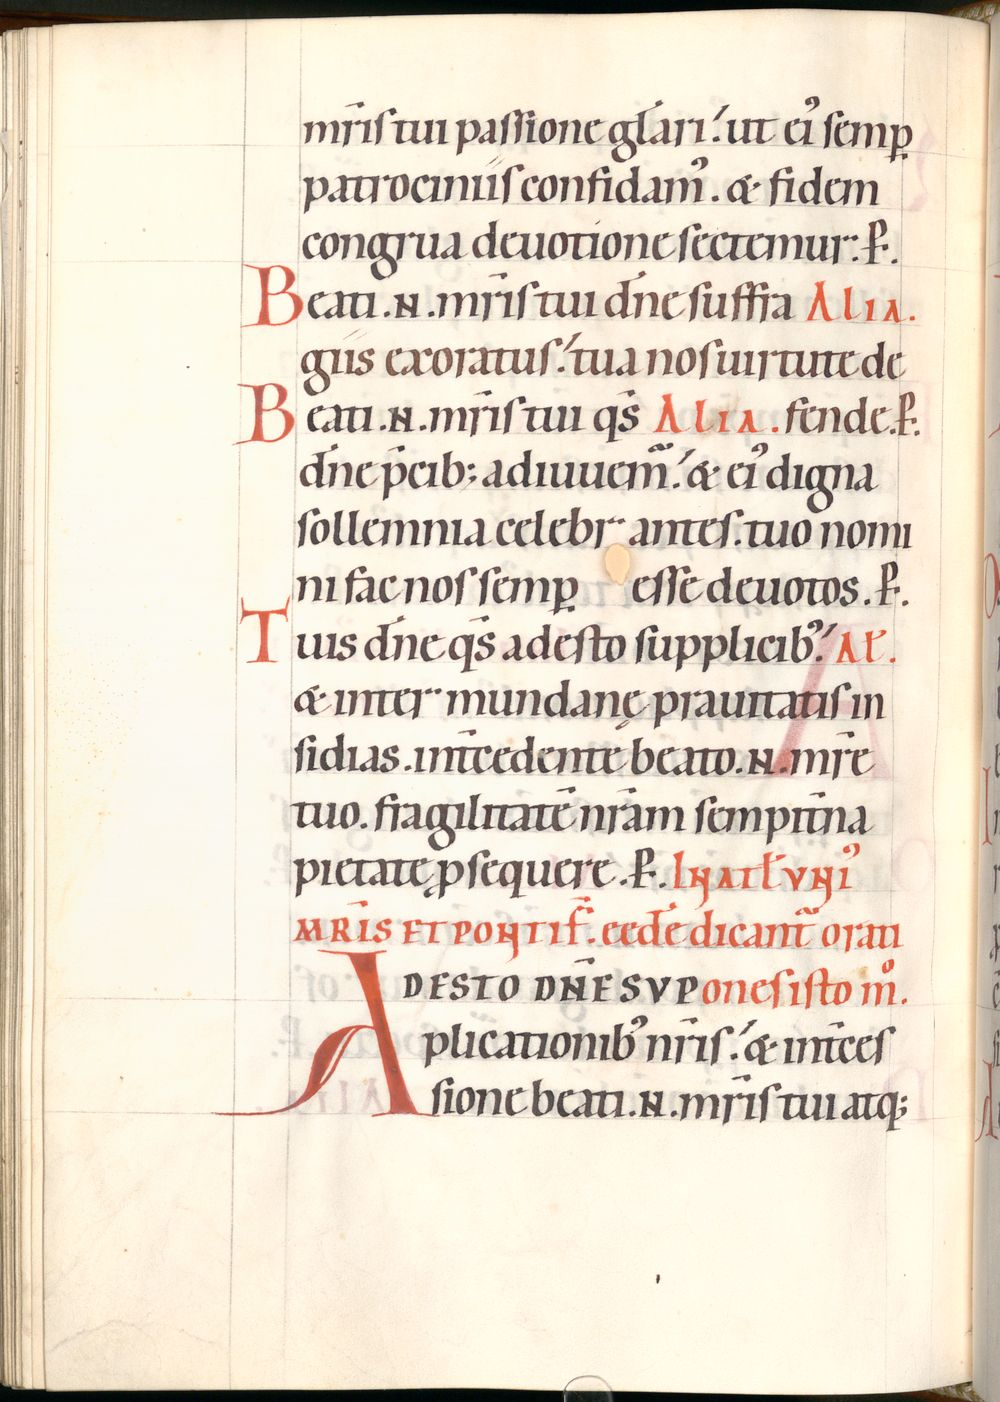 mr̄is tui passione gl̄ari. ut ei᾽ semp̲
patrociniis confidam᾽. & fidem
congrua deuotione sectemur. P̲.
Beati .N. mr̄is tui dn̄e suffra ALIA.
giis exoratus. tua nos uirtute de
Beati .N. mr̄is tui qs̄ ALIA. fende. P̲.
dn̄e p̄cib; adiuuem̄. & ei᾽ digna
sollemnia celebrantes. tuo nomi
ni fac nos semp̲ esse deuotos. P̲.
Tuis dn̄e qs̄ adesto supplicib᾽. AL̄.
& inter mundanę prauitatis in
sidias. int̄cedente beato .N. mr̄e
tuo. fragilitatē nr̄am sempit̄na
pietate p̲sequere. P̲. IN NATL̄ VNI᾽
MR̄IS ET PONTIF̄. eedē dicant̄ orati
ADESTO DN̄E SVP one sisto mº.
plicationib᾽ nr̄is. & int̄ces
sione beati .N. mr̄is tui atq;